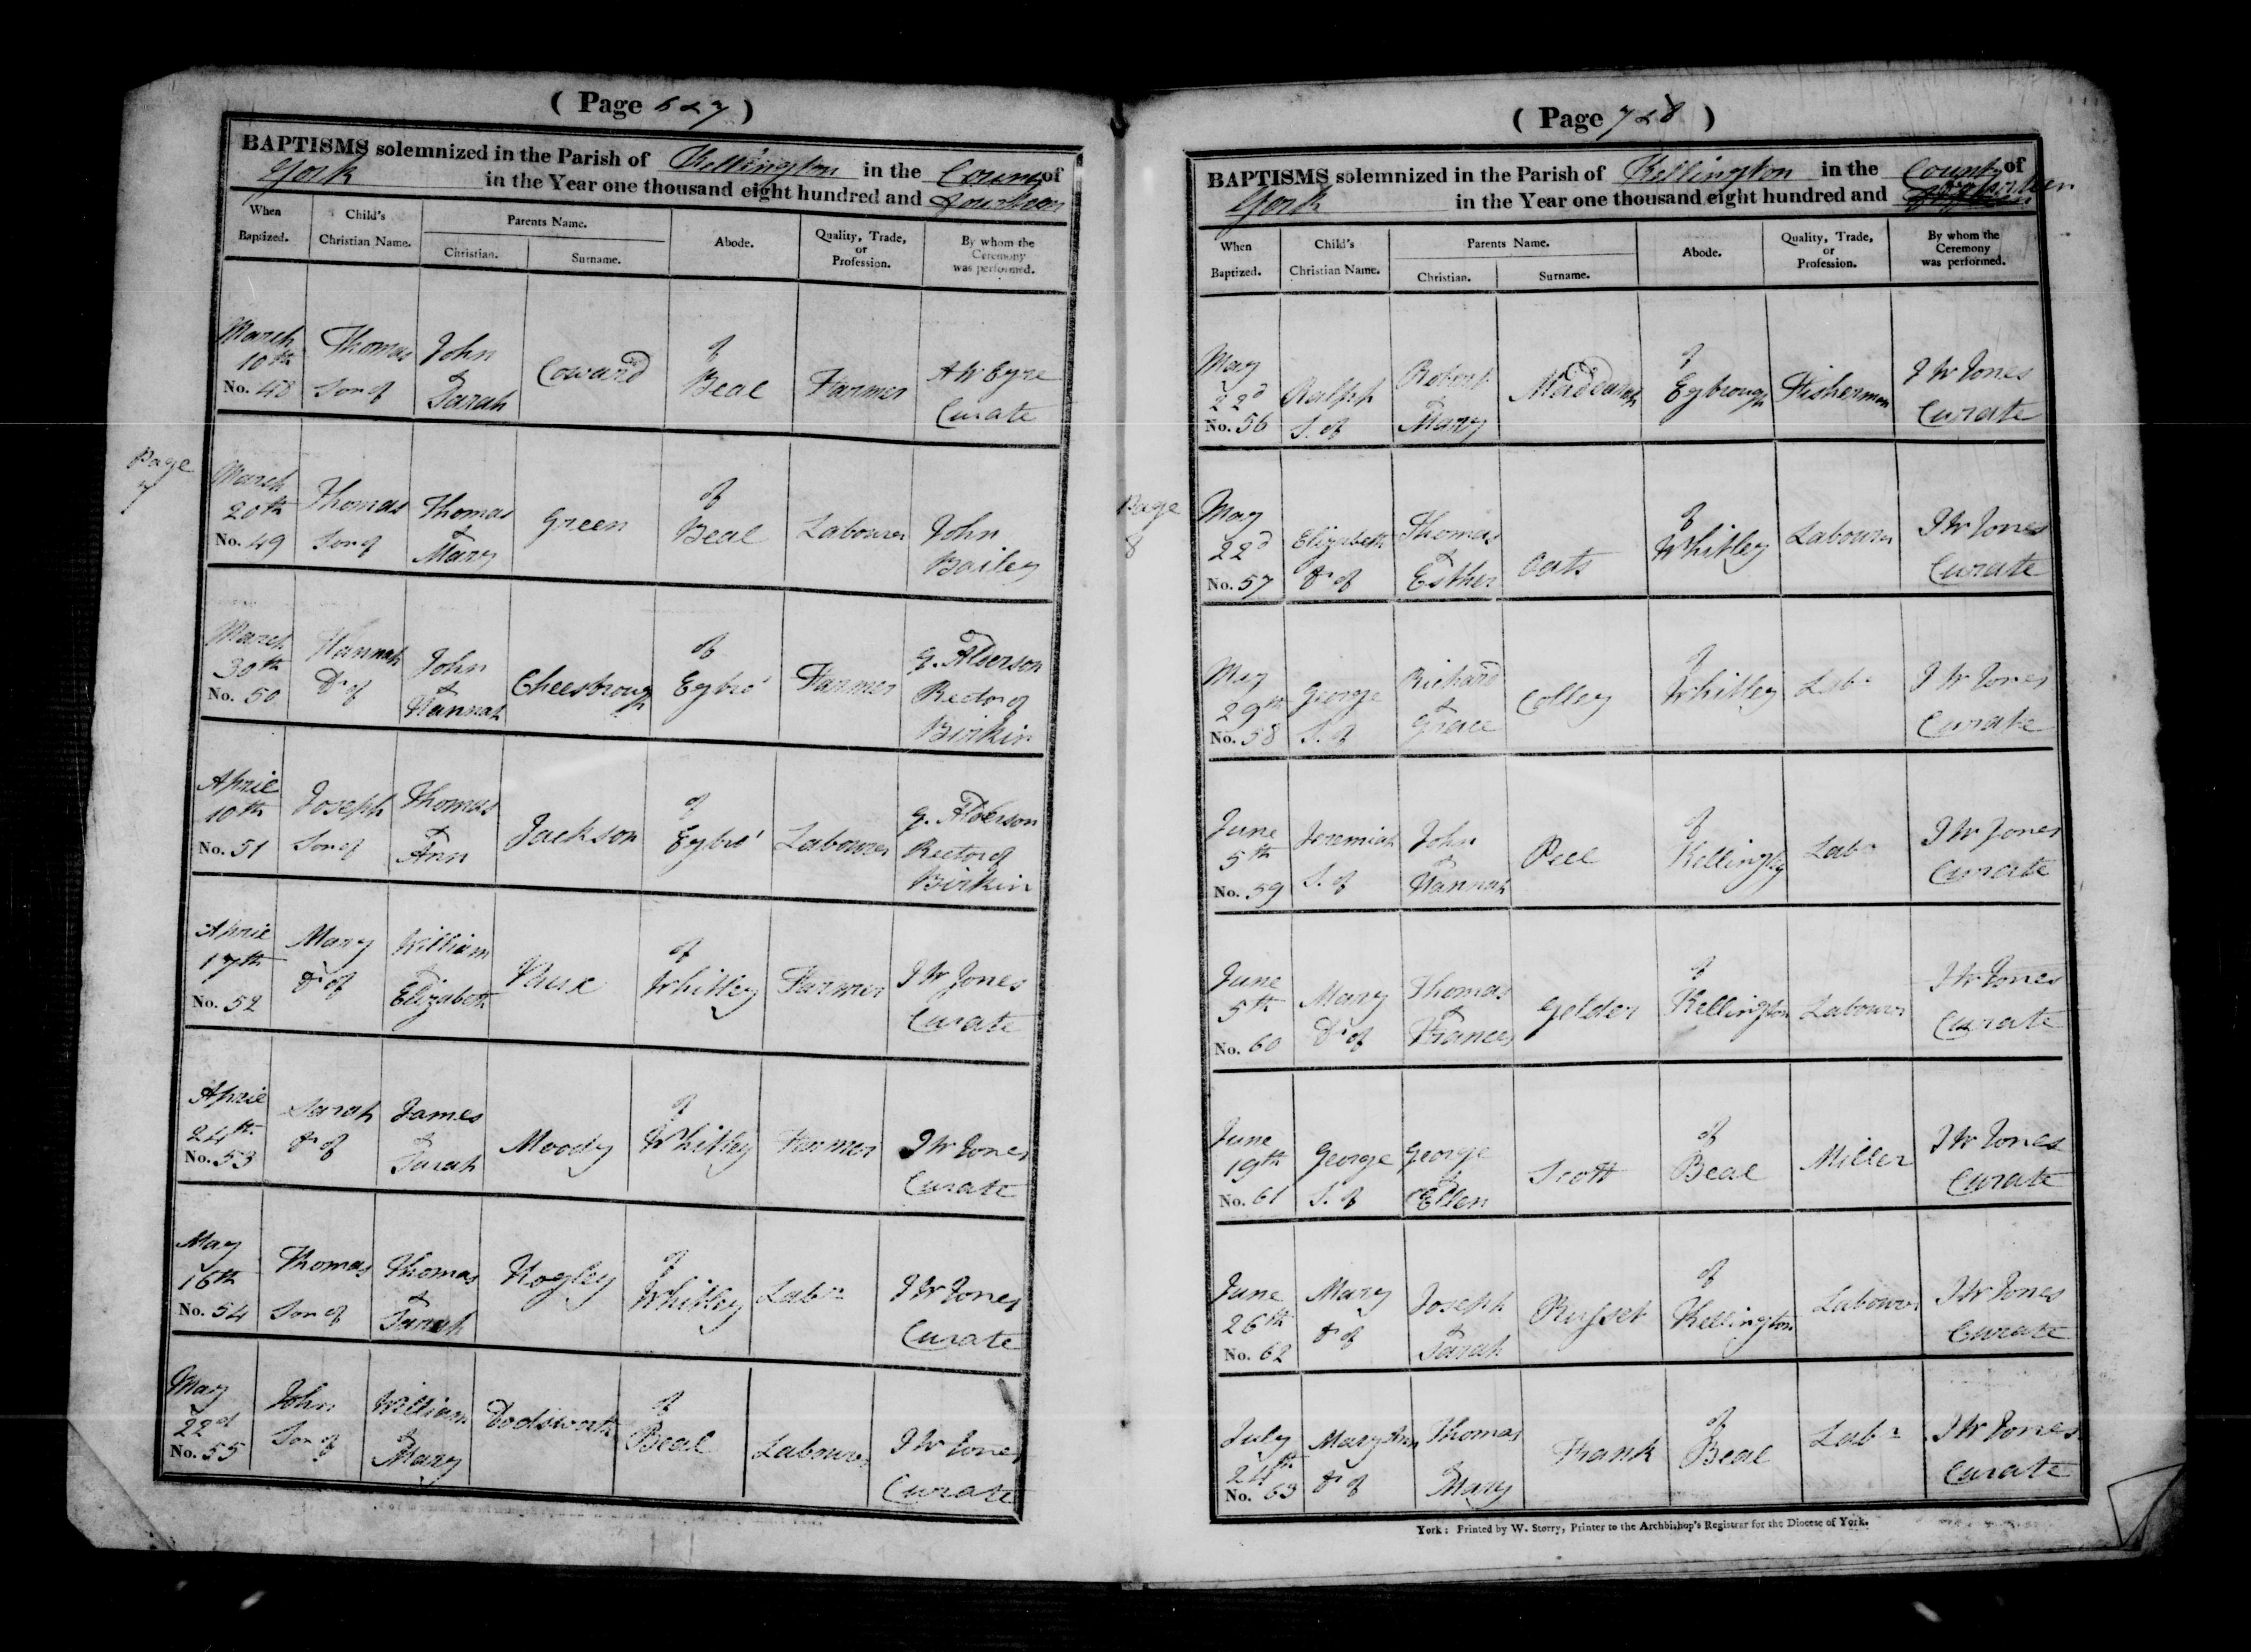 ( Page 7 )
BAPTISMS solemnized in the Parish of Kellington in the County of
York in the Year one thousand eight hundred and Fourteen
When Baptized.
Child's Christian Name.
Parents Name.
Christian.
Surname.
Abode.
Quality, Trade, or Profession.
By whom the Ceremony was performed.
March 10th No. 48
Thomas Son of
John & Sarah
Coward
of Beal
Farmer
Curate
Page 7
March 20th No. 49
Thomas Son of
Thomas & Mary
Green
of Beal
Labourer
John Bailey
March 30th No. 50
Hannah Dr of
John & Hannah
Cheesbrough
of Egbro'
Farmer
G. Alderson Rector of Birkin
April 10th No. 51
Joseph Son of
Thomas & Ann
Jackson
of Egbro'
Labourer
G. Alderson Rector of Birkin
April 17th No. 52
Mary Dr of
William & Elizabeth
Vaux
of Whitley
Farmer
J W Jones Curate
April 24th No. 53
Sarah Dr of
James & Sarah
Moody
of Whitley
Farmer
J W Jones Curate
May 16th No. 54
Thomas Son of
Thomas & Sarah
Hogley
of Whitley
Labr
J W Jones Curate
May 22d No. 55
John Son of
William & Mary
Dodsworth
of Beal
Labourer
J W Jones Curate
( Page 8 )
BAPTISMS solemnized in the Parish of Kellington in the County of
York in the Year one thousand eight hundred and fourteen
When Baptized.
Child's Christian Name.
Parents Name.
Christian.
Surname.
Abode.
Quality, Trade, or Profession.
By whom the Ceremony was performed.
May 22d No. 56
Ralph S. of
Robert & Mary
of Egbrough
Fisherman
J W Jones Curate
Page 8
May 22d No. 57
Elizabeth Dr of
Thomas & Esther
Oats
of Whitley
Labourer
J W Jones Curate
May 29th No. 58
George S. of
Richard & Grace
Colley
of Whitley
Labr
J W Jones Curate
June 5th No. 59
Jeremiah S. of
John & Hannah
Peel
of Kellingley
Labr
J W Jones Curate
June 5th No. 60
Mary Dr of
Thomas & Frances
Gelder
of Kellington
Labourer
J W Jones Curate
June 19th No. 61
George S. of
George & Ellen
Scott
of Beal
Miller
J W Jones Curate
June 26th No. 62
Mary Dr of
Joseph & Sarah
Russet
of Kellington
Labourer
J W Jones Curate
July 24th No. 63
Mary Ann Dr of
Thomas & Mary
Frank
of Beal
Labr
J W Jones Curate
York: Printed by W. Storry, Printer to the Archbishop's Registrar for the Diocese of York.